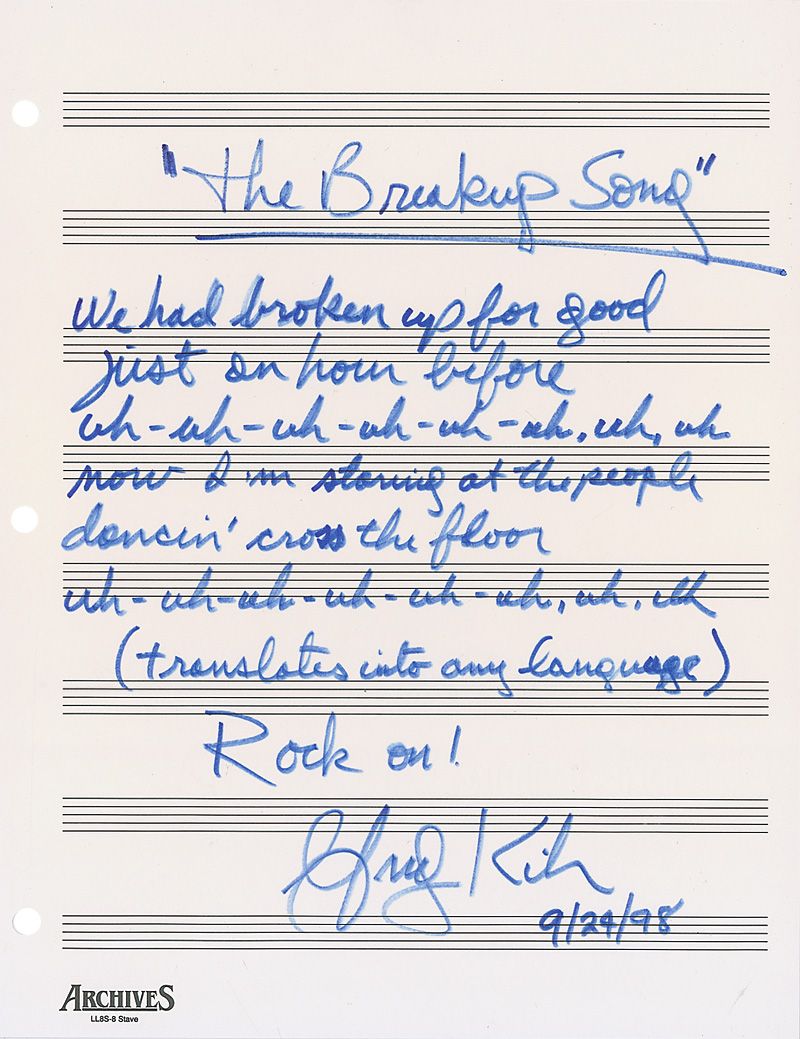 "The Breakup Song"
We had broken up for good
just an hour before
uh-uh-uh-uh-uh-uh, uh, uh
now I'm staring at the people
dancin' cross the floor
uh-uh-uh-uh-uh-uh, uh, uh
(translates into any language)
Rock on!
Greg Kihn
9/24/98
ARCHIVES
LL8S-8 Stave